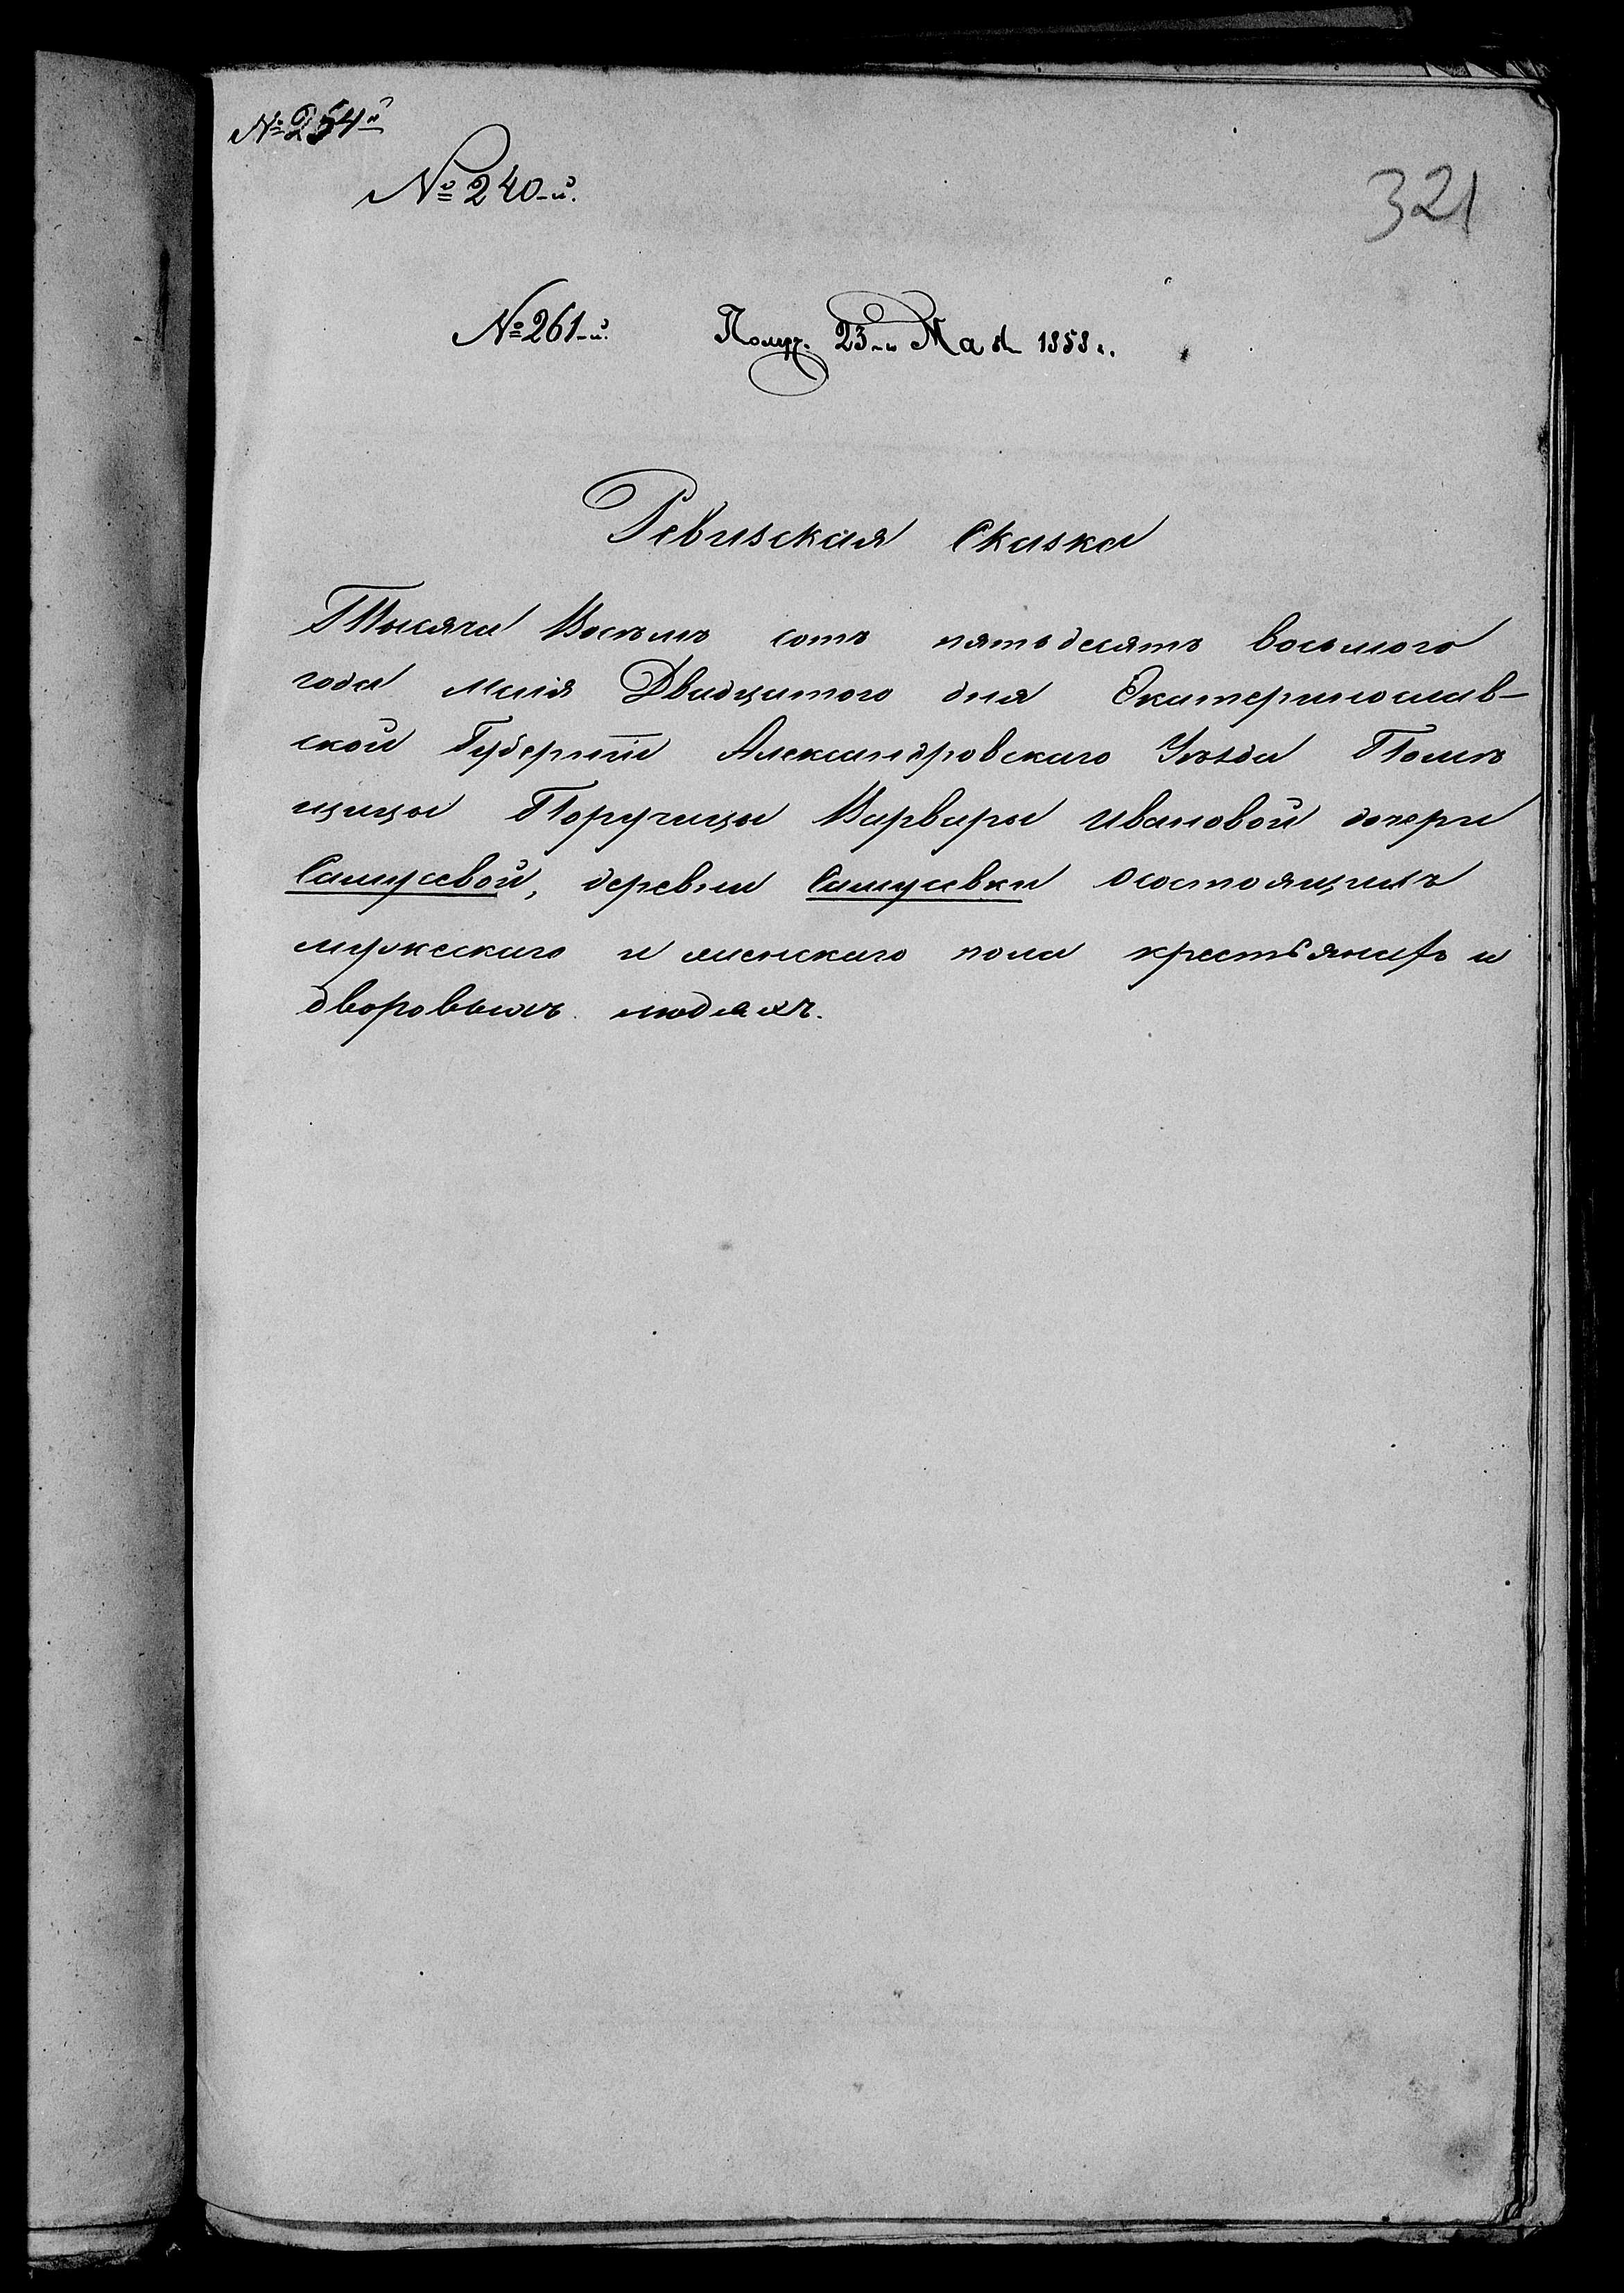 № 254й
№ 240-й.
321
№ 261-й. Получ. 23-го Мая 1858 г.
Ревизская Сказка
Тысяча Восемь сотъ пятьдесятъ восьмого
года маія Двадцатого дня Екатеринослав-
ской Губерніи Александровскаго Уѣзда Помѣ
щицы Поручицы Варвары Ивановой дочери
деревни осостоящихъ
мужескаго и женскаго пола крестьянахъ и
дворовыхъ людяхъ.